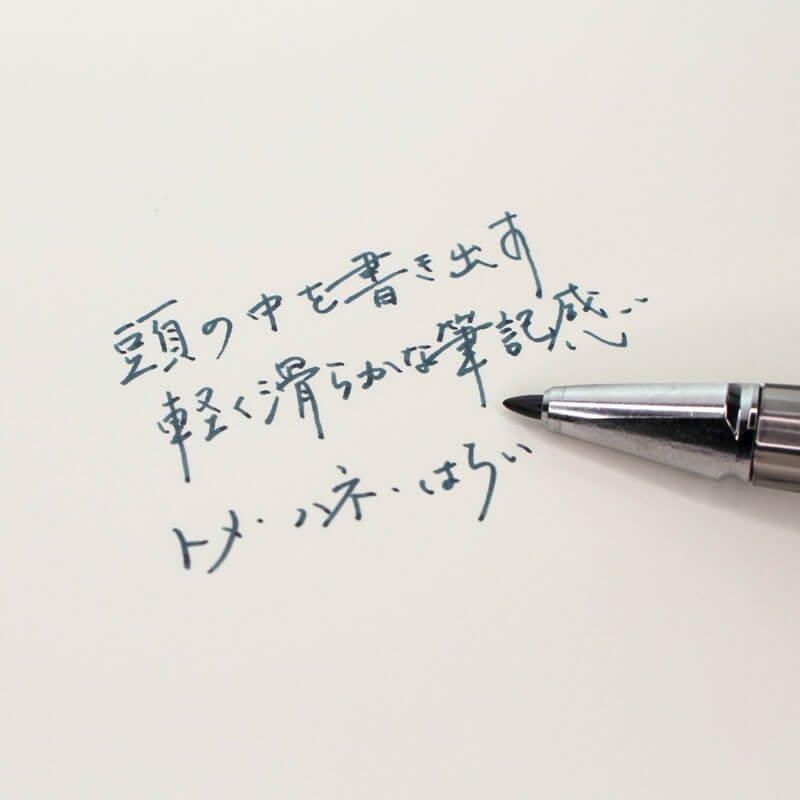 頭の中を書き出す
軽く滑らかな筆記感…
トメ・ハネ・はらい